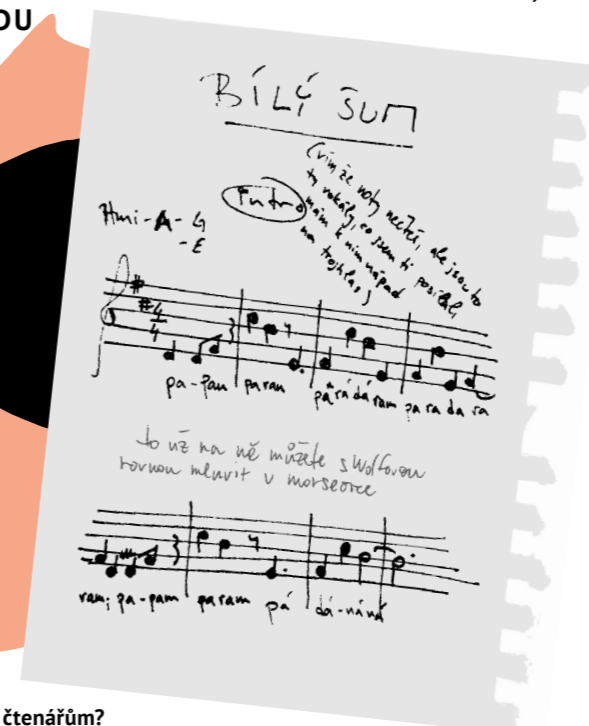 DU
BÍLÝ ŠUM
intro
(vím že noty nečteš, ale jsou to
ty vokály, co jsem ti posílal,
mám k nim nápad
na trojhlas)
Hmi - A - G
- E
4
4
pa - pan paran párádáram pa ra da ra
to už na ně můžete s Wolfovou
rovnou mluvit v morseovce
ram, pa - pam param pá dá - náná
čtenářům?